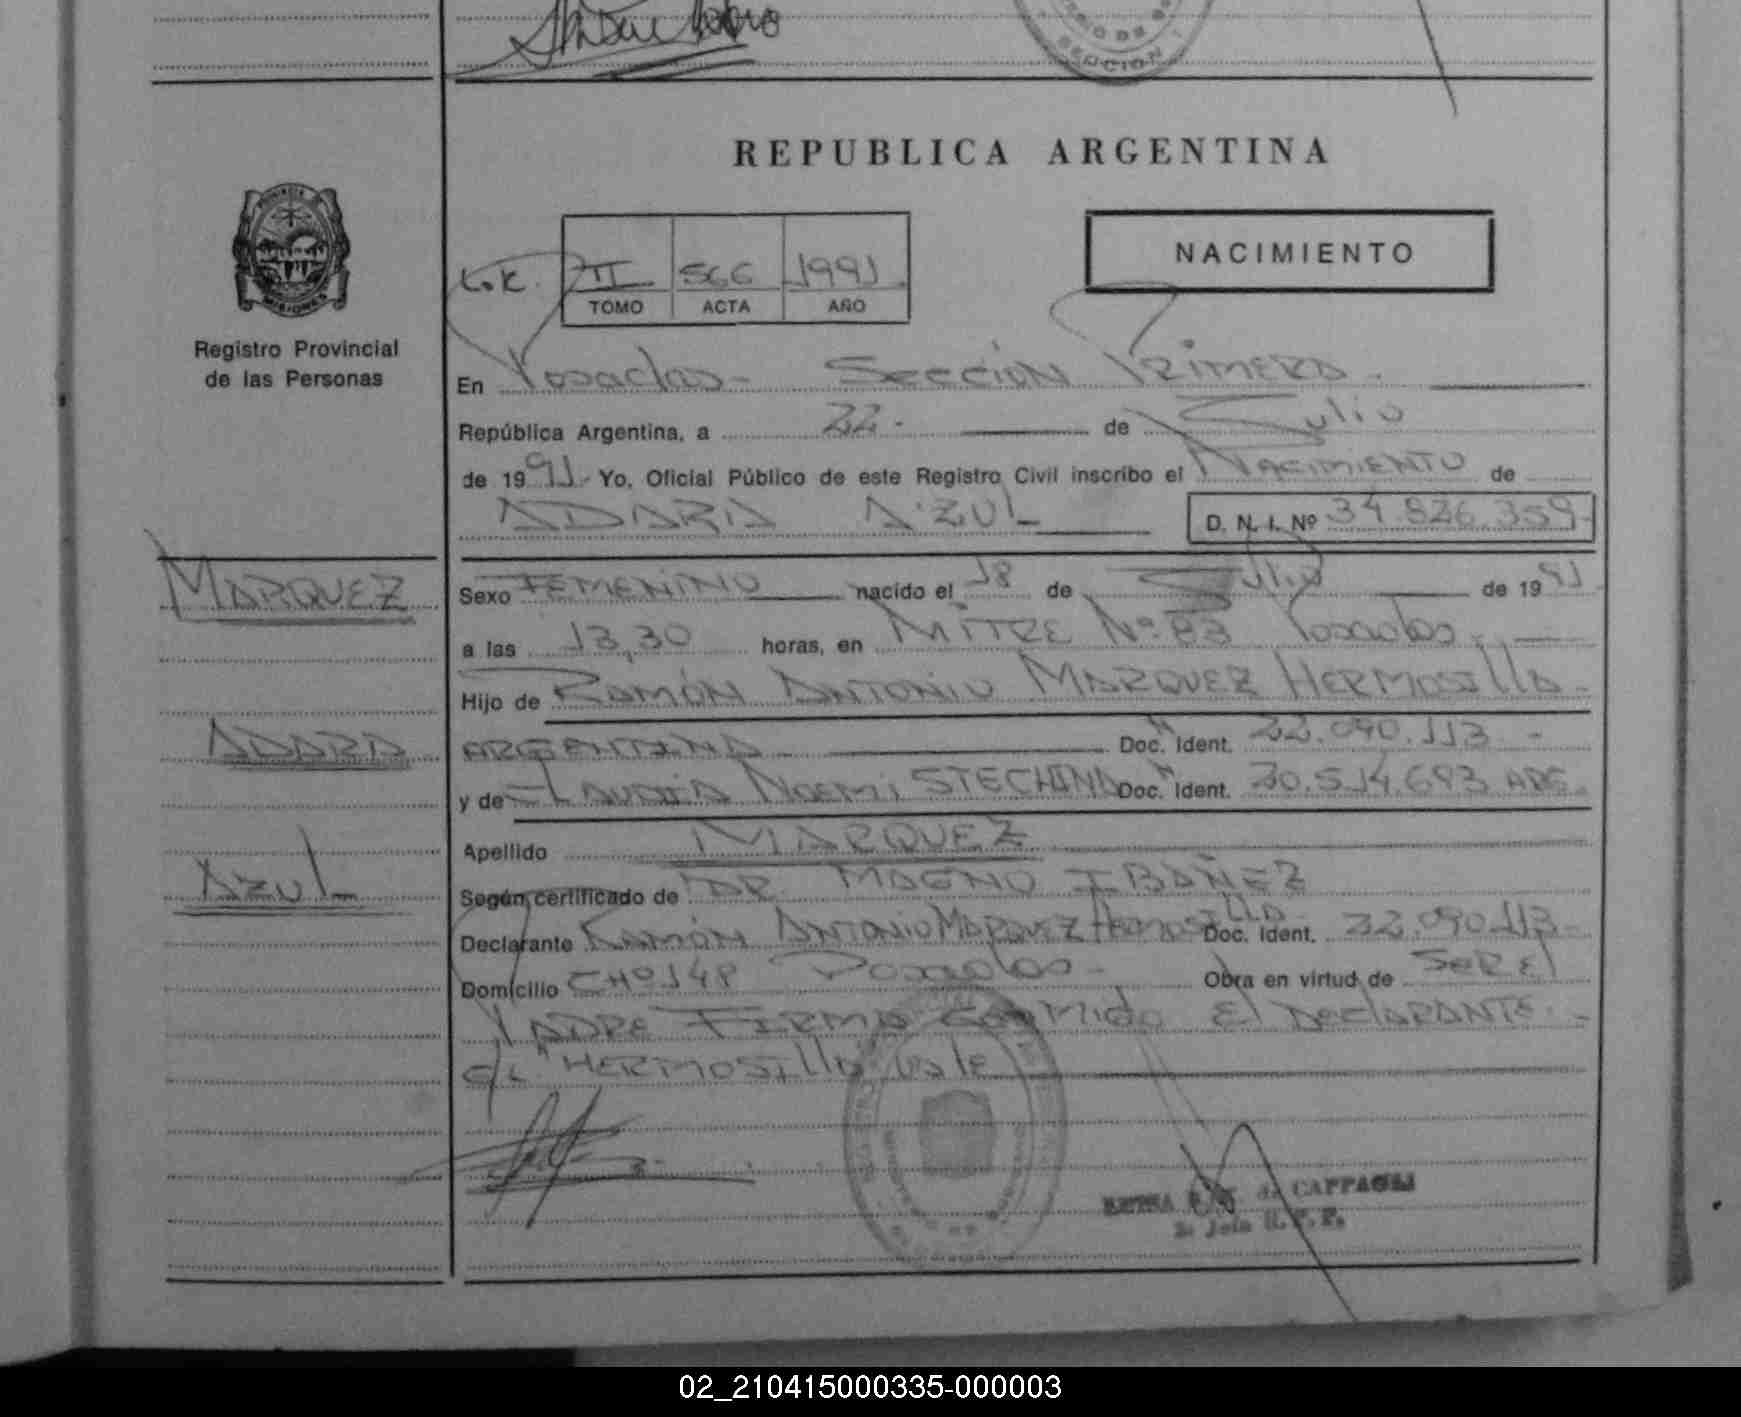 SECCION 1
REPUBLICA ARGENTINA
PROVINCIA
MISIONES
Registro Provincial
de las Personas
NACIMIENTO
II 566 1991
TOMO ACTA AÑO
En Posadas - Sección Primera.
República Argentina, a 22 - de Julio
de 1991 - Yo, Oficial Público de este Registro Civil inscribo el Nacimiento de
ADARA AZUL D. N. I. Nº 34.826.359-
MARQUEZ
ADARA
AZUL
Sexo FEMENINO nacido el 18 de Julio de 1991
a las 13,30 horas, en MITRE Nº 83 Posadas.
Hijo de RAMÓN ANTONIO MARQUEZ HERMOSILLA -
ARGENTINA Doc. Ident. 22.090.113 -
y de CLAUDIA NOEMI STECHINA Doc. Ident. 20.514.693 ARG.
Apellido MARQUEZ
Según certificado de DR. MAGNO IBAÑEZ
Declarante RAMÓN ANTONIO MARQUEZ HERMOSILLA - Doc. Ident. 22.090.113 -
Domicilio CHº 148 Posadas - Obra en virtud de SER El
PADRE FIRMA CONMIGO El DECLARANTE. -
HERMOSILLA Vale
de CAPPAGLI
02_210415000335-000003